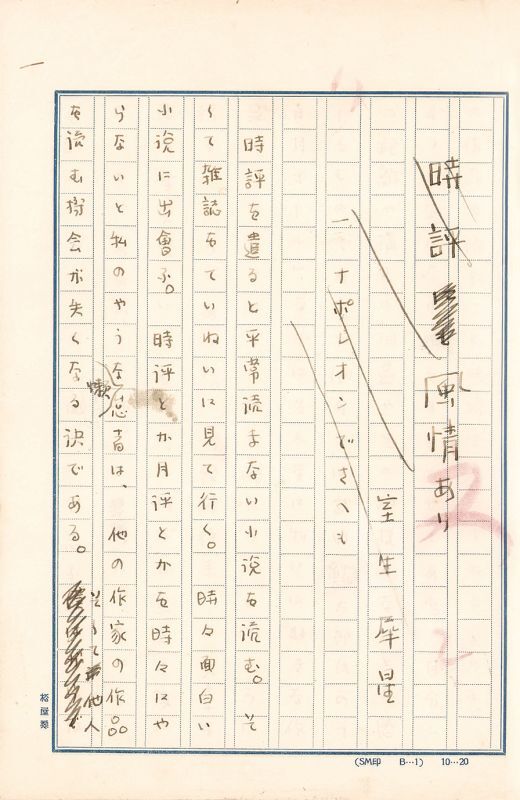 時評風情あり
室生犀星
一 ナポレオンでさへも
時評を遣ると平常読まない小説を読む。そ
して雑誌をていねいに見て行く。時々面白い
小説に出會ふ。時評とか月評とかを時々にや
らないと私のやうな懶怠者は、他の作家の作
を読む機会が失くなる訳である。そして他人
(SM印 B…1) 10…20